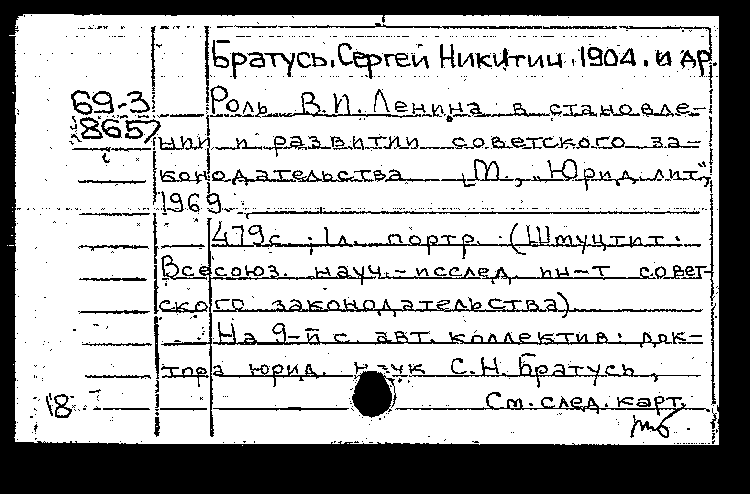 Братусь, Сергей Никитич. 1904. и др.
69-3
8657
Роль В.И. Ленина в становле-
нии и развитии советского за-
конодательства [М., „Юрид. лит.",
1969.
479 с.; 1 л. портр. (Шмуцтит:
Всесоюз. науч.-исслед. ин-т совет-
ского законодательства)
На 9-й с. авт. коллектив: док-
тора юрид. наук С.Н. Братусь,
См. след. карт.
18